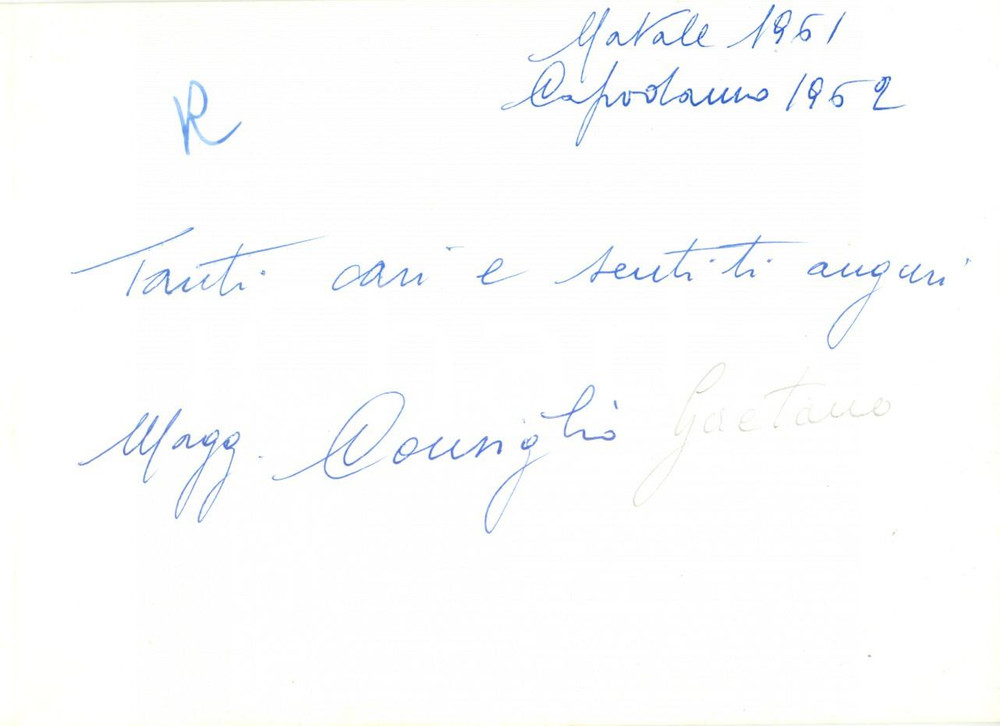 Natale 1951
Capodanno 1952
R
Tanti cari e sentiti auguri
Magg. Consiglio Gaetano